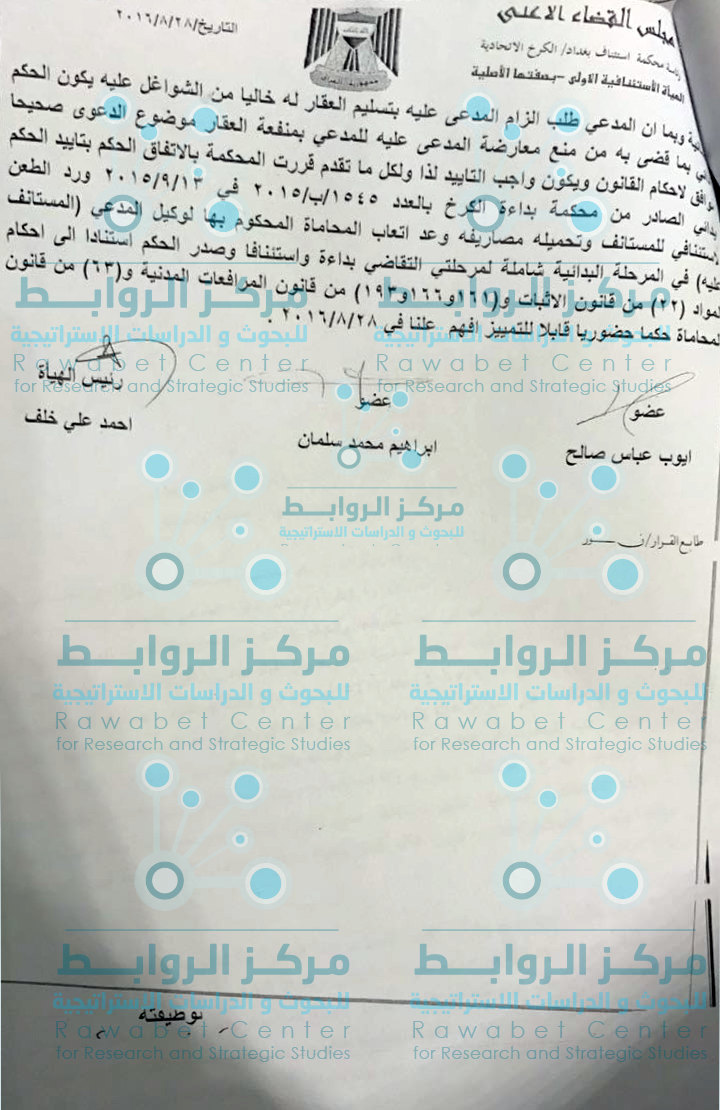 مجلس القضاء الاعلى
رئاسة محكمة استئناف بغداد/ الكرخ الاتحادية
الهيأة الأستئنافية الاولى -بصفتها الأصلية
التاريخ/٢٠١٦/٨/٢٨
جمهورية العراق
وبما ان المدعي طلب الزام المدعى عليه بتسليم العقار له خاليا من الشواغل عليه يكون الحكم
بما قضى به من منع معارضة المدعى عليه للمدعي بمنفعة العقار موضوع الدعوى صحيحا
لاحكام القانون ويكون واجب التاييد لذا ولكل ما تقدم قررت المحكمة بالاتفاق الحكم بتاييد الحكم
الصادر من محكمة بداءة الكرخ بالعدد ١٥٤٥/ب/٢٠١٥ في ٢٠١٥/٩/١٣ ورد الطعن
الاستئنافي للمستانف وتحميله مصاريفه وعد اتعاب المحاماة المحكوم بها لوكيل المدعي (المستانف
عليه) في المرحلة البدائية شاملة لمرحلتي التقاضي بداءة واستئنافا وصدر الحكم استنادا الى احكام
المواد (٢٢) من قانون الاثبات و(١٦١و١٦٦و١٩٣) من قانون المرافعات المدنية و(٦٣) من قانون
المحاماة حكما حضوريا قابلا للتمييز افهم علنا في ٢٠١٦/٨/٢٨ .
عضو
ايوب عباس صالح
عضو
ابراهيم محمد سلمان
رئيس الهيأة
احمد علي خلف
طابع القرار/
مركز الروابط
للبحوث و الدراسات الاستراتيجية
Rawabet Center
for Research and Strategic Studies
مركز الروابط
للبحوث و الدراسات الاستراتيجية
Rawabet Center
for Research and Strategic Studies
مركز الروابط
للبحوث و الدراسات الاستراتيجية
Rawabet Center
مركز الروابط
للبحوث و الدراسات الاستراتيجية
Rawabet Center
for Research and Strategic Studies
مركز الروابط
للبحوث و الدراسات الاستراتيجية
Rawabet Center
for Research and Strategic Studies
مركز الروابط
للبحوث و الدراسات الاستراتيجية
Rawabet Center
for Research and Strategic Studies
مركز الروابط
للبحوث و الدراسات الاستراتيجية
Rawabet Center
for Research and Strategic Studies